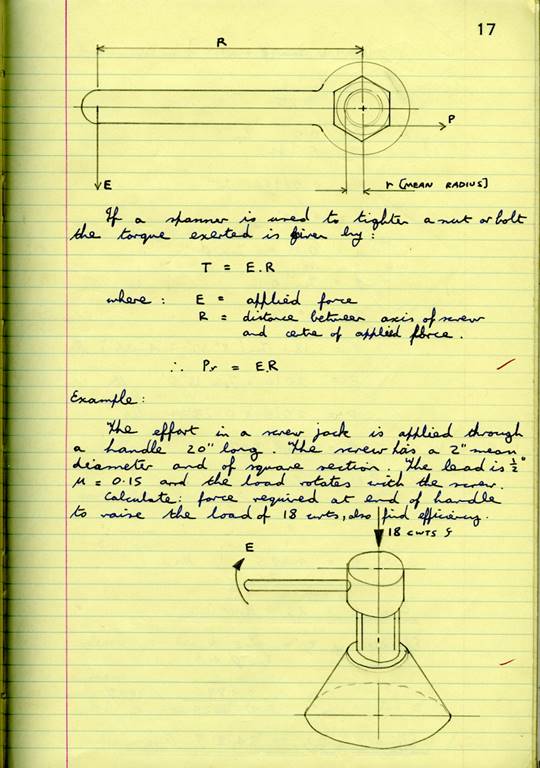 17
R
P
E
r [MEAN RADIUS]
If a spanner is used to tighten a nut or bolt
the torque exerted is given by:
T = E.R
where: E = applied force
R = distance between axis of screw
and cetre of applied force.
∴ Pr = E.R
Example:
The effort in a screw jack is applied through
a handle 20" long. The screw has a 2" mean
diameter and of square section. The lead is ½"
μ = 0.15 and the load rotates with the screw.
Calculate: force required at end of handle
to raise the load of 18 cwts, also find efficiency.
18 CWTS
E